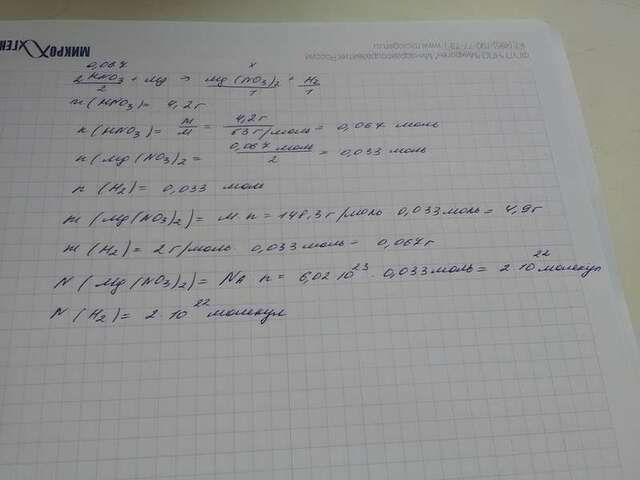 МИКРОХГЕН
0,067 x
2HNO3 + Mg → Mg(NO3)2 + H2
2 1 1
m(HNO3) = 4,2г
n(HNO3) = m/M = 4,2г/63г/моль = 0,067 моль
n(Mg(NO3)2 = 0,067 моль/2 = 0,033 моль
n(H2) = 0,033 моль
m(Mg(NO3)2) = M·n = 148,3г/моль 0,033моль = 4,9г
m(H2) = 2г/моль · 0,033моль = 0,067г
N(Mg(NO3)2) = NA n = 6,02·10^23 · 0,033моль = 2·10^22 молекул
N(H2) = 2·10^22 молекул